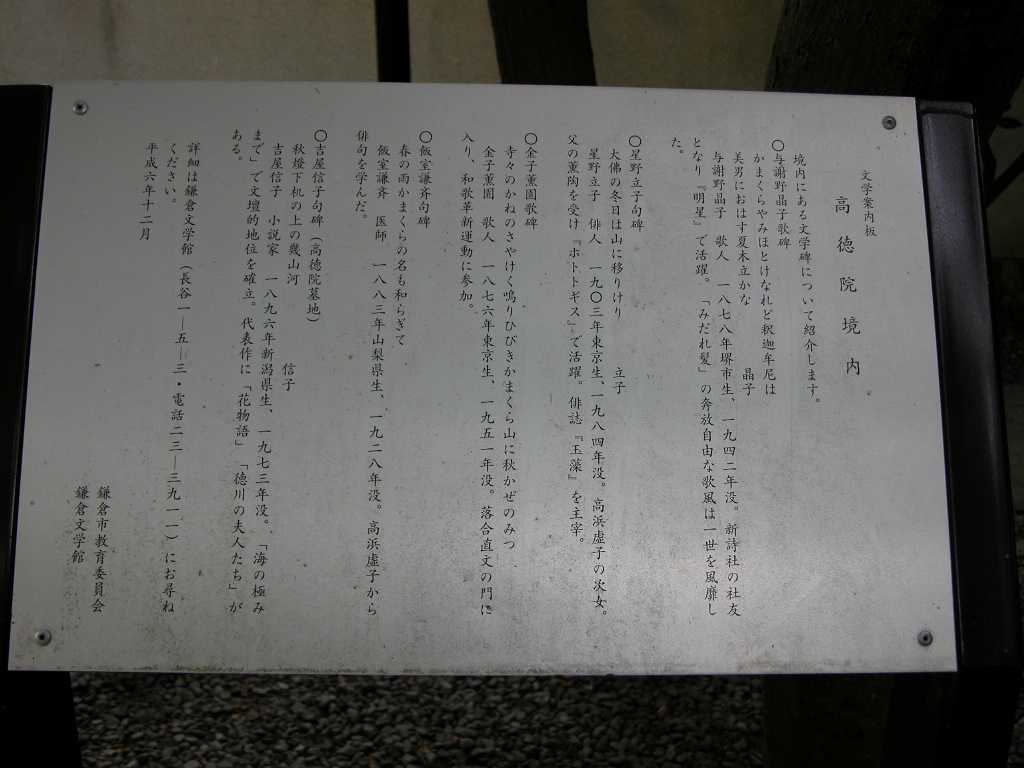 文学案内板
高徳院境内
境内にある文学碑について紹介します。
〇与謝野晶子歌碑
かまくらやみほとけなれど釈迦牟尼は
美男におはす夏木立かな　晶子
与謝野晶子　歌人　一八七八年堺市生、一九四二年没。新詩社の社友
となり『明星』で活躍。「みだれ髪」の奔放自由な歌風は一世を風靡し
た。
〇星野立子句碑
大佛の冬日は山に移りけり　立子
星野立子　俳人　一九〇三年東京生、一九八四年没。高浜虚子の次女。
父の薫陶を受け『ホトトギス』で活躍。俳誌『玉藻』を主宰。
〇金子薫園歌碑
寺々のかねのさやけく鳴りひびきかまくら山に秋かぜのみつ
金子薫園　歌人　一八七六年東京生、一九五一年没。落合直文の門に
入り、和歌革新運動に参加。
〇飯室謙斉句碑
春の雨かまくらの名も和らぎて
飯室謙斉　医師　一八八三年山梨県生、一九二八年没。高浜虚子から
俳句を学んだ。
〇吉屋信子句碑（高徳院墓地）
秋燈下机の上の幾山河　信子
吉屋信子　小説家　一八九六年新潟県生、一九七三年没。「海の極み
まで」で文壇的地位を確立。代表作に「花物語」「徳川の夫人たち」が
ある。
詳細は鎌倉文学館（長谷一―五―三・電話二三―三九一一）にお尋ね
ください。
平成六年十二月
鎌倉市教育委員会
鎌倉文学館